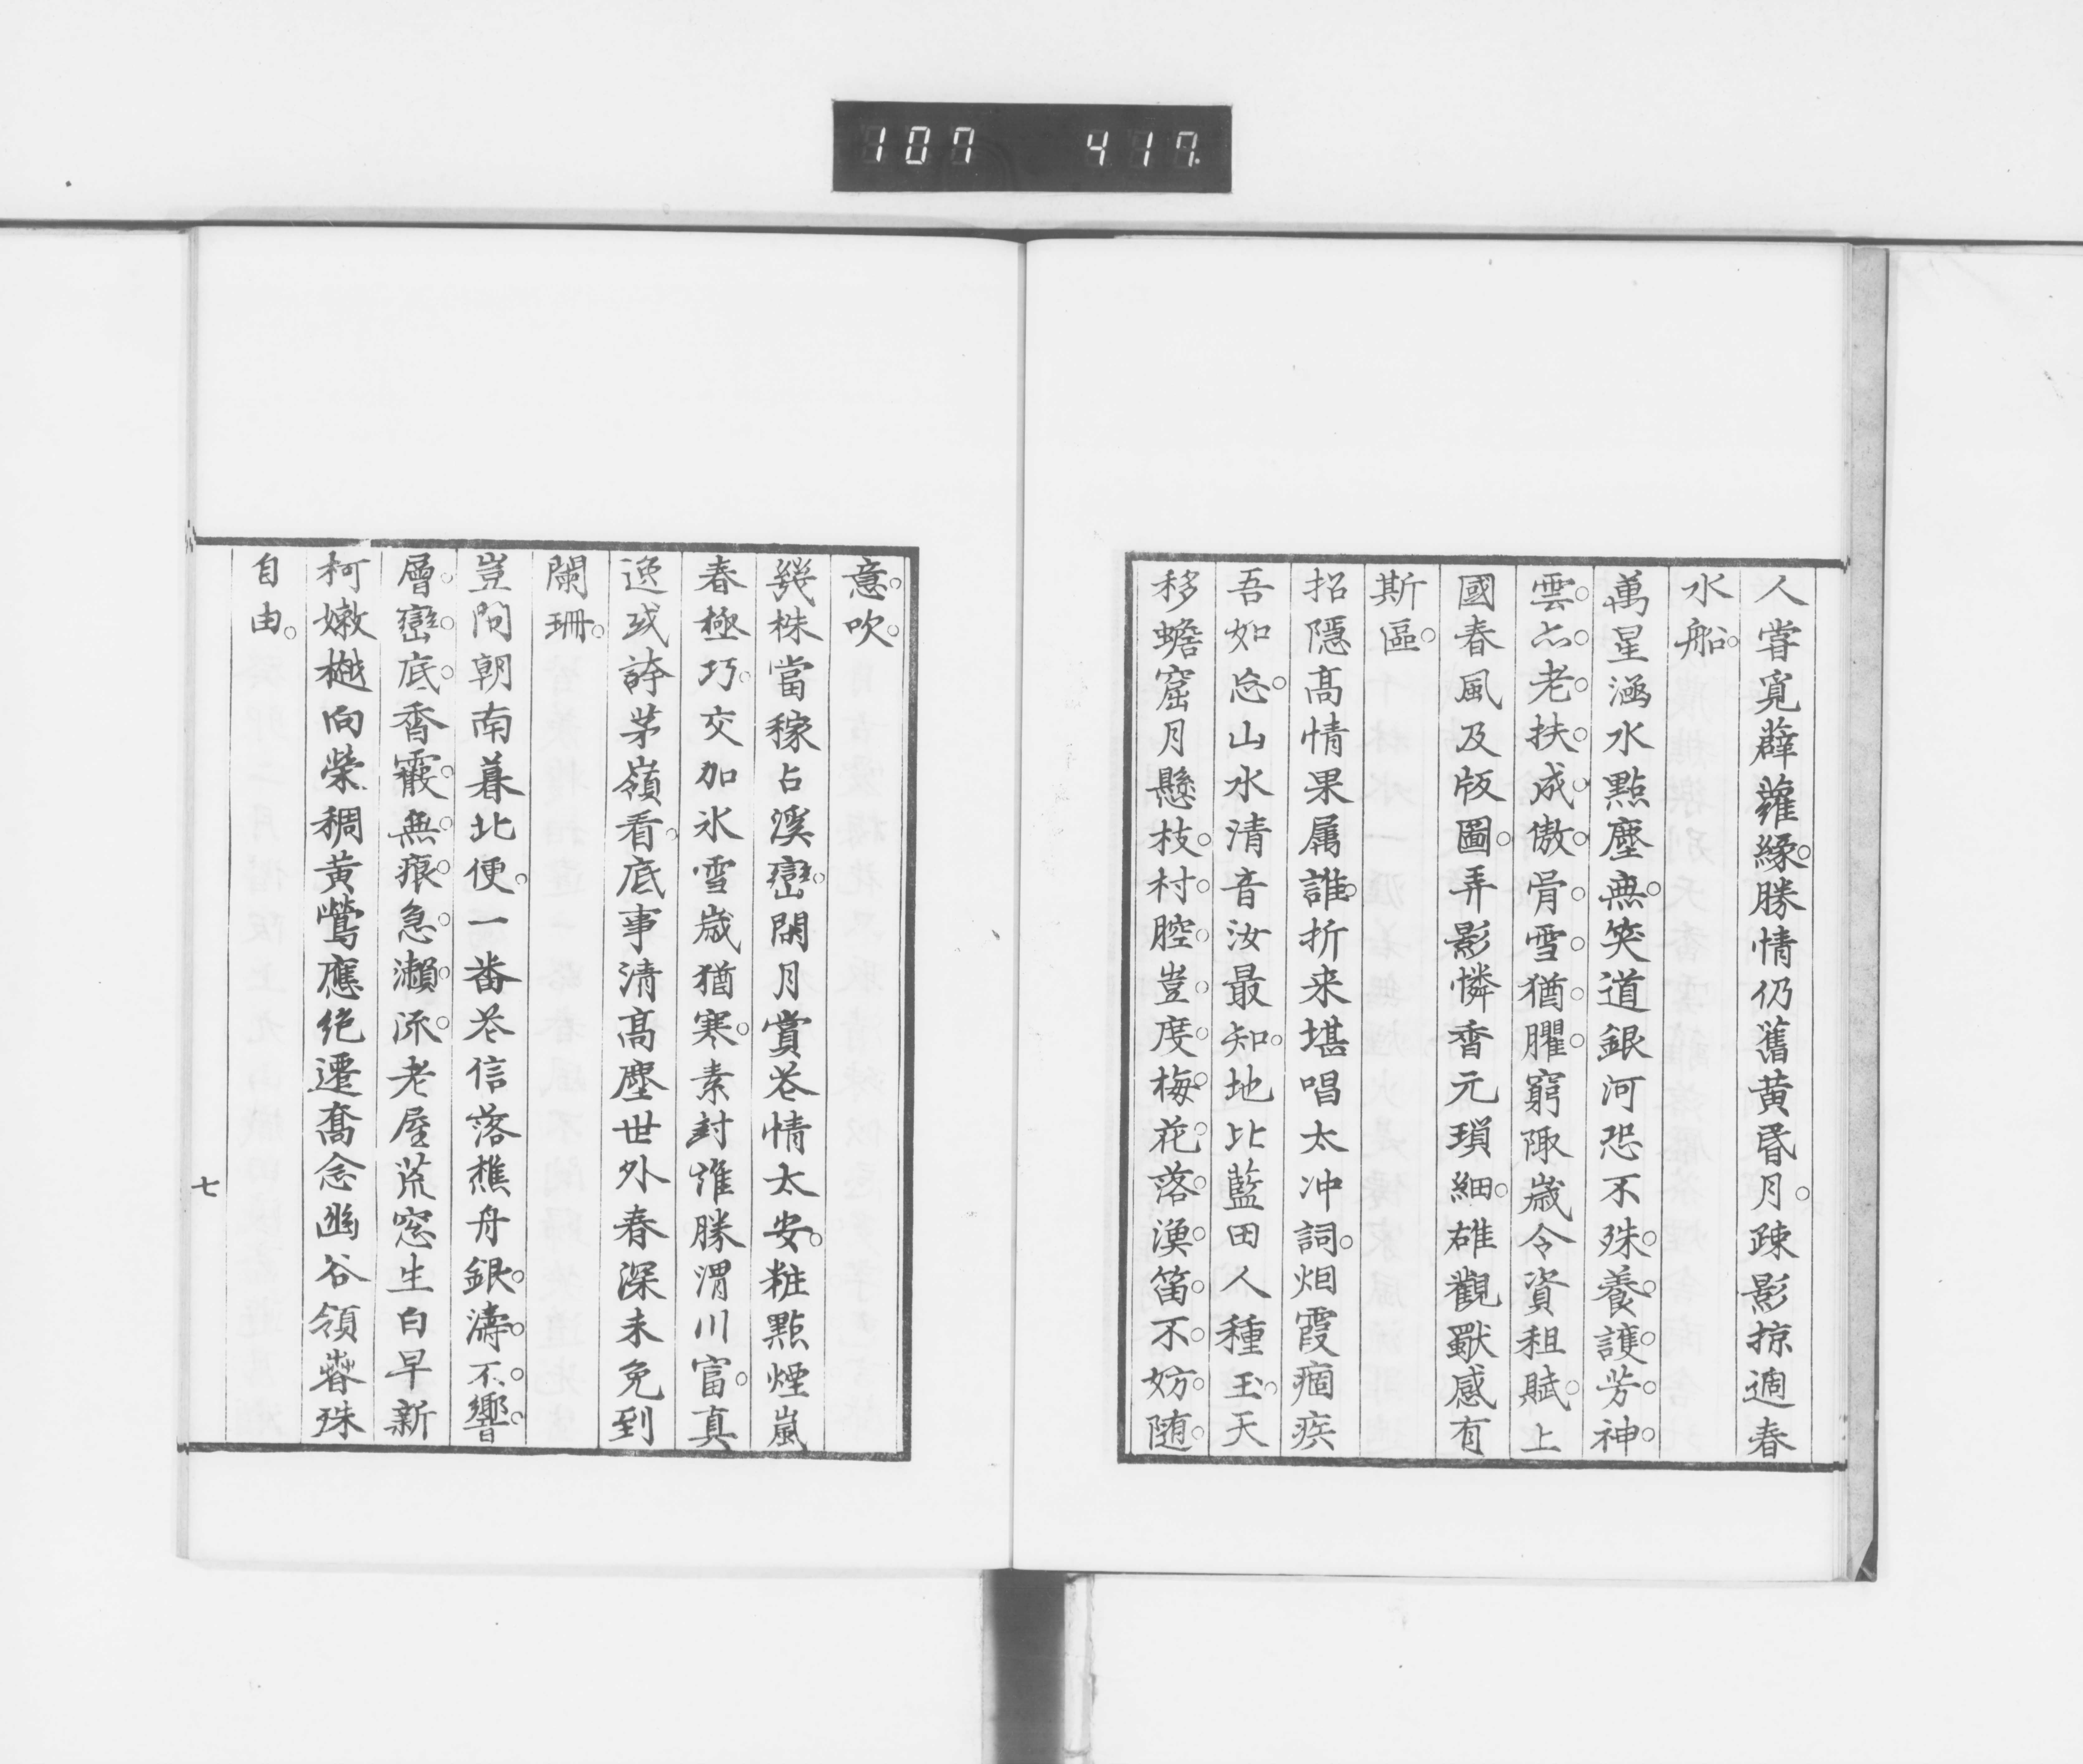 107 417
人嘗覓薜蘿緣勝情仍舊黄昏月疎影掠過春
水船
萬星涵水點塵無笑道銀河恐不殊養護芳神
雲亦老扶成傲骨雪猶臞窮陬歳令資租賦上
國春風及版圖弄影憐香元瑣細雄觀獸感有
斯區
招隱高情果属誰折来堪唱太冲詞烟霞痼疾
吾如忘山水清音汝最知地比藍田人種玉天
移蟾窟月懸枝村腔豈度梅花落漁笛不妨随
意吹
幾株當稼占溪巒閑月賞花情太安粧點煙嵐
春極巧交加氷雪歳猶寒素封誰勝渭川富真
逸或誇茅嶺看底事清高塵世外春深未免到
闌珊
豈問朝南暮北便一番花信落樵舟銀濤不響
層巒底香霰無痕急瀬流老屋荒窓生白早新
柯嫩樾向榮稠黄鶯應绝遷喬念幽谷領春殊
自由
七